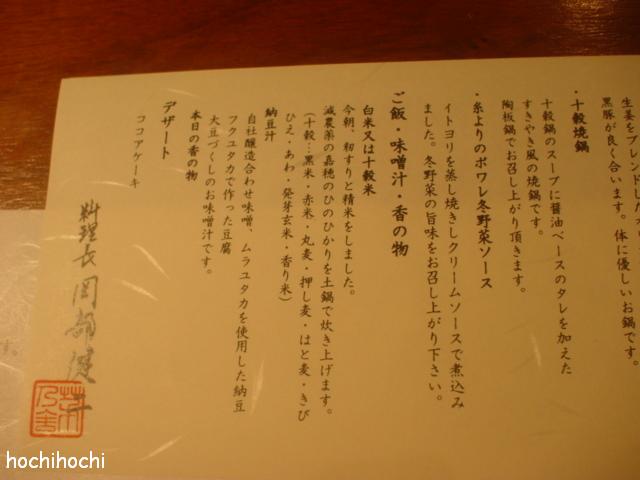 生姜をブレンドした
黒豚が良く合います。体に優しいお鍋です。
・十穀焼鍋
十穀鍋のスープに醤油ベースのタレを加えた
すきやき風の焼鍋です。
陶板鍋でお召し上がり頂きます。
・糸よりのポワレ冬野菜ソース
イトヨリを蒸し焼きしクリームソースで煮込み
ました。冬野菜の旨味をお召し上がり下さい。
ご飯・味噌汁・香の物
白米又は十穀米
今朝、籾すりと精米をしました。
減農薬の嘉穂のひのひかりを土鍋で炊き上げます。
(十穀…黒米・赤米・丸麦・押し麦・はと麦・きび
ひえ・あわ・発芽玄米・香り米)
納豆汁
自社醸造合わせ味噌、ムラユタカを使用した納豆
フクユタカで作った豆腐
大豆づくしのお味噌汁です。
本日の香の物
デザート
ココアケーキ
料理長 岡部健二
す。
hochihochi